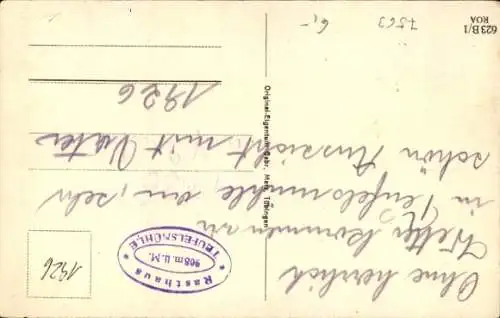 623 B/1
ROA
7563
6,-
Original-Eigentum Gebr. Metz, Tübingen
Ohne herrlich
Wetter kommen wir
in Teufelsmühle an, sehr
schön Aussicht mit Vater
1926
Rasthaus
908 m. ü. M.
TEUFELSMÜHLE
1926